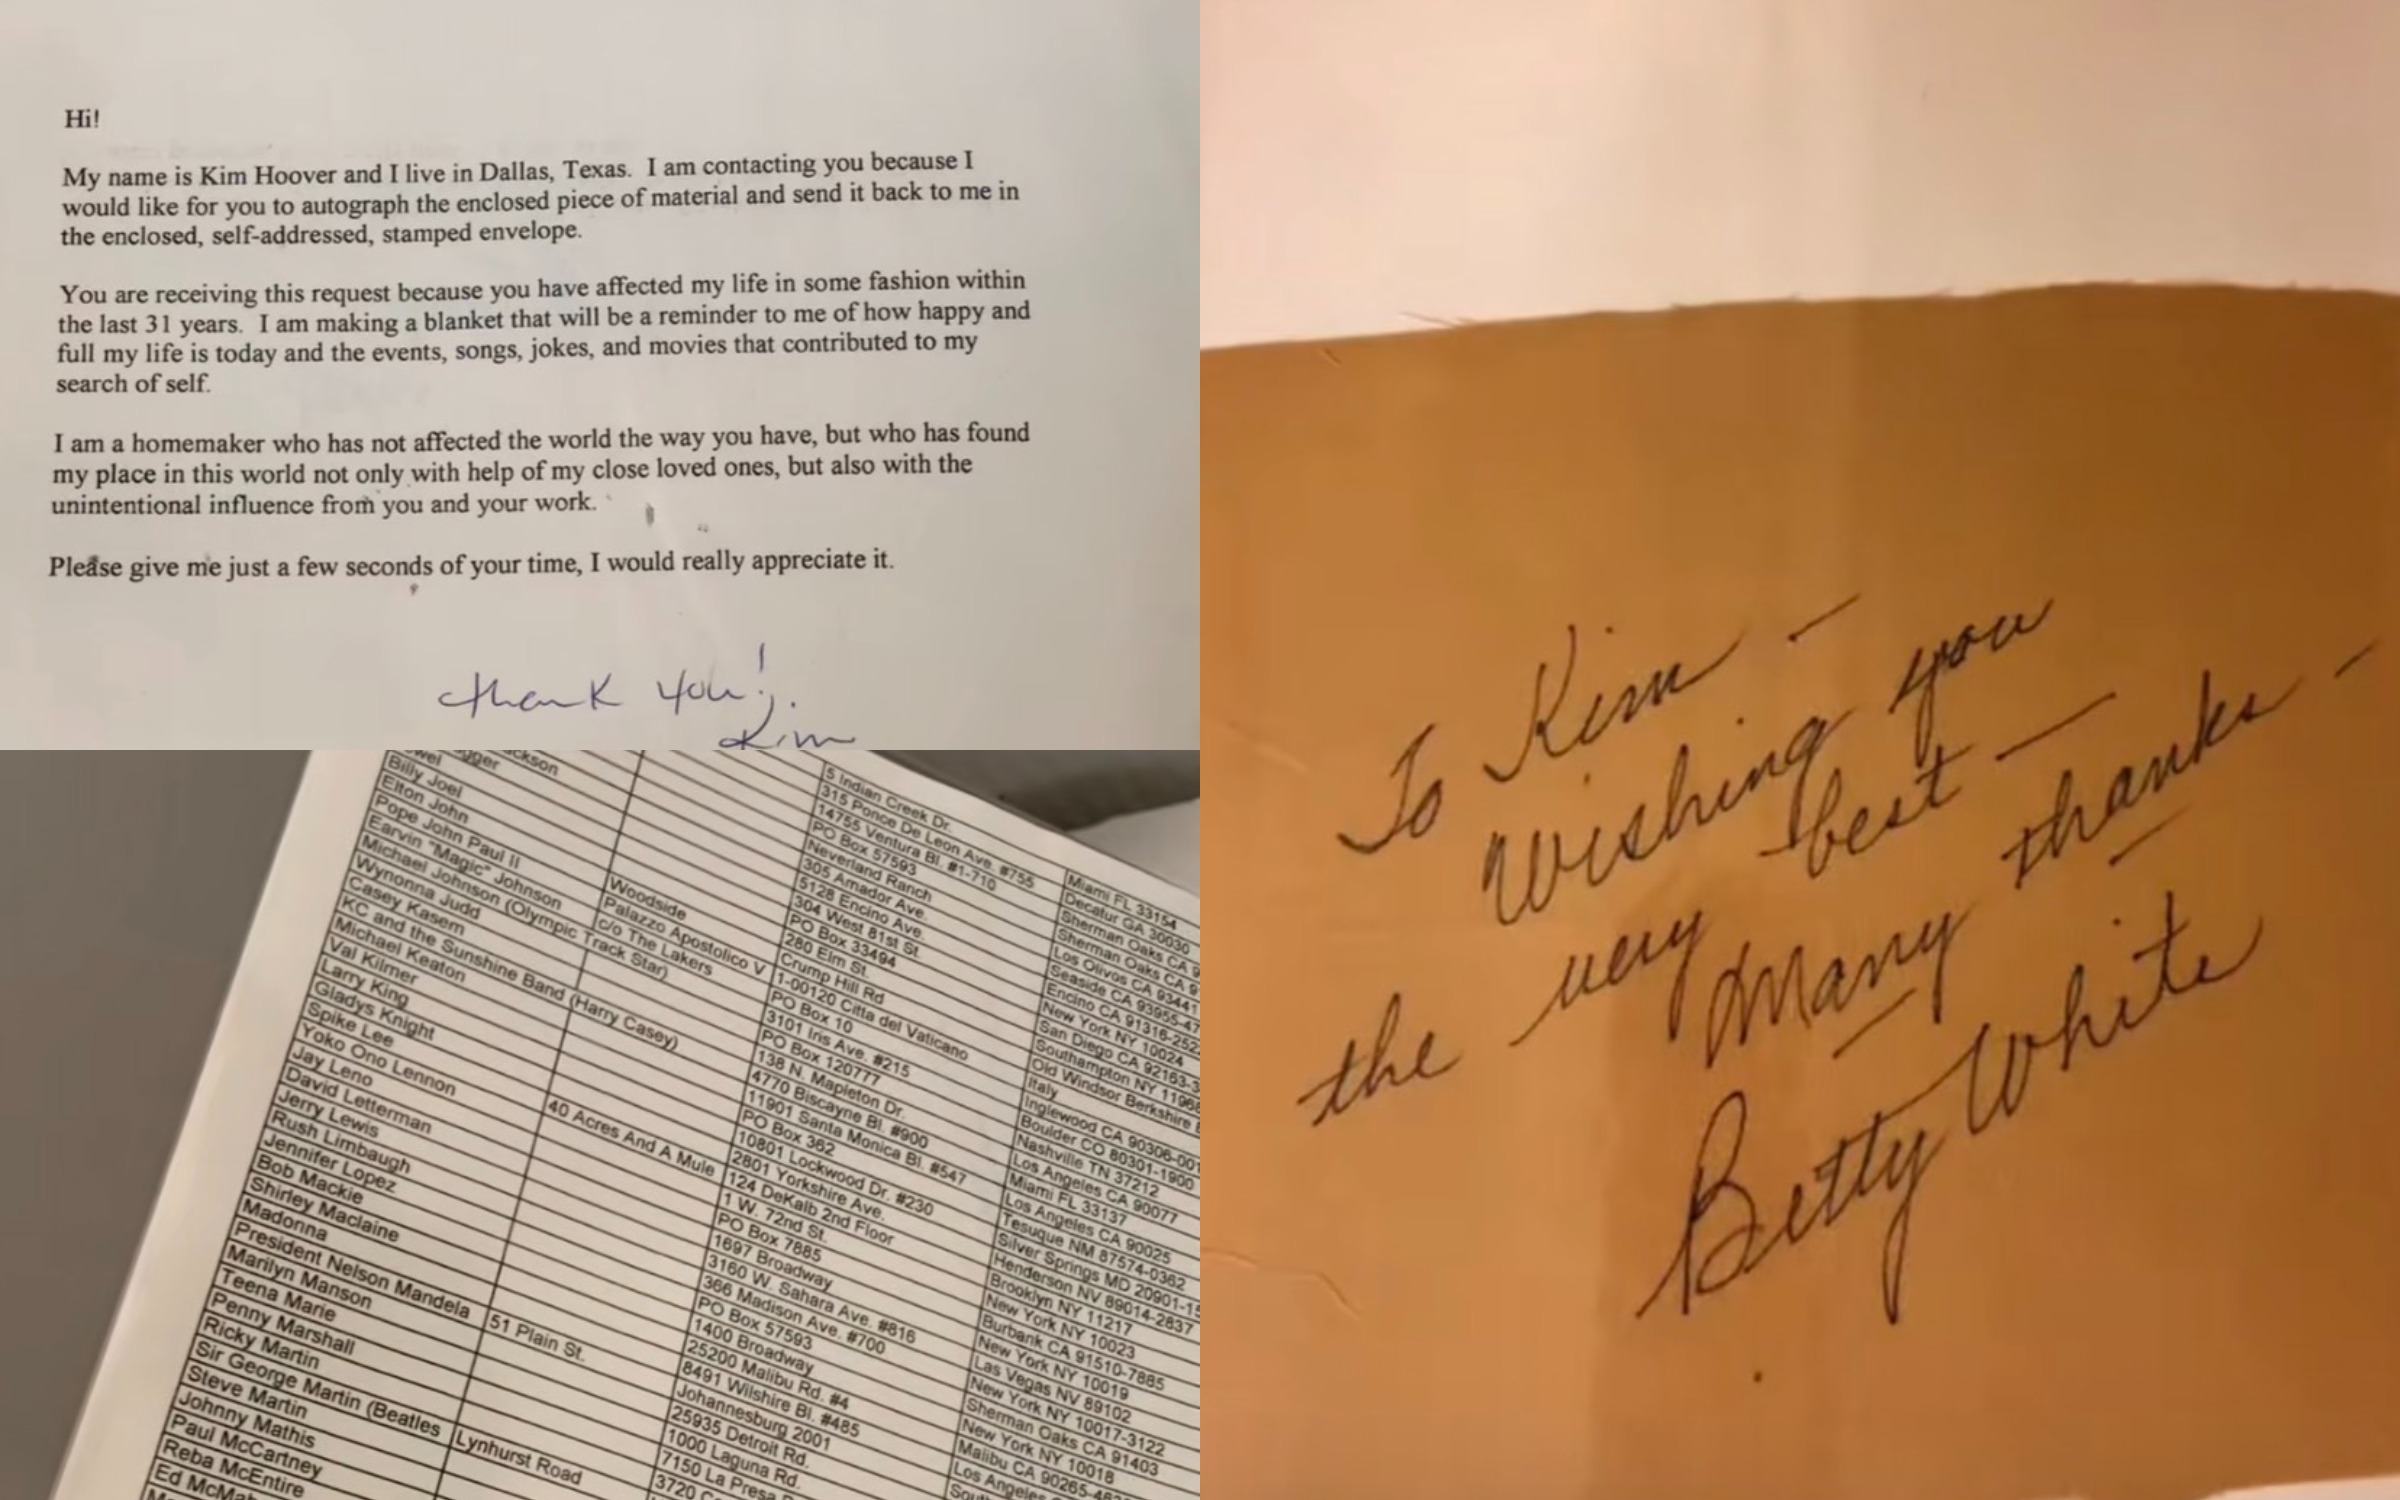 Hi!
My name is Kim Hoover and I live in Dallas, Texas. I am contacting you because I
would like for you to autograph the enclosed piece of material and send it back to me in
the enclosed, self-addressed, stamped envelope.
You are receiving this request because you have affected my life in some fashion within
the last 31 years. I am making a blanket that will be a reminder to me of how happy and
full my life is today and the events, songs, jokes, and movies that contributed to my
search of self.
I am a homemaker who has not affected the world the way you have, but who has found
my place in this world not only with help of my close loved ones, but also with the
unintentional influence from you and your work.
Please give me just a few seconds of your time, I would really appreciate it.
thank you!
Kim
Billy Joel
Elton John
Pope John Paul II
Earvin "Magic" Johnson
Michael Johnson (Olympic Track Star)
Wynonna Judd
Casey Kasem
KC and the Sunshine Band (Harry Casey)
Michael Keaton
Val Kilmer
Larry King
Gladys Knight
Spike Lee
Yoko Ono Lennon
Jay Leno
David Letterman
Jerry Lewis
Rush Limbaugh
Jennifer Lopez
Bob Mackie
Shirley Maclaine
Madonna
President Nelson Mandela
Marilyn Manson
Teena Marie
Penny Marshall
Ricky Martin
Sir George Martin (Beatles
Steve Martin
Johnny Mathis
Paul McCartney
Reba McEntire
Woodside
Palazzo Apostolico V
c/o The Lakers
40 Acres And A Mule
51 Plain St.
Lynhurst Road
5 Indian Creek Dr.
315 Ponce De Leon Ave. #755
14755 Ventura Bl. #1-710
PO Box 57593
Neverland Ranch
305 Amador Ave.
5128 Encino Ave.
304 West 81st St.
PO Box 33494
280 Elm St.
Crump Hill Rd
1-00120 Citta del Vaticano
PO Box 10
3101 Iris Ave. #215
PO Box 120777
138 N. Mapleton Dr.
4770 Biscayne Bl. #900
11901 Santa Monica Bl. #547
PO Box 362
10801 Lockwood Dr. #230
2801 Yorkshire Ave.
124 DeKalb 2nd Floor
1 W. 72nd St.
PO Box 7885
1697 Broadway
3160 W. Sahara Ave. #816
366 Madison Ave. #700
PO Box 57593
1400 Broadway
25200 Malibu Rd. #4
8491 Wilshire Bl. #485
Johannesburg 2001
25935 Detroit Rd.
1000 Laguna Rd.
7150 La Presa
3720
Miami FL 33154
Decatur GA 30030
Sherman Oaks CA
Sherman Oaks CA
Los Olivos CA 93441
Seaside CA 93955-47
Encino CA 91316-252
New York NY 10024
San Diego CA 92163-3
Southampton NY 11968
Old Windsor Berkshire
Italy
Inglewood CA 90306-001
Boulder CO 80301-1900
Nashville TN 37212
Los Angeles CA 90077
Miami FL 33137
Los Angeles CA 90025
Tesuque NM 87574-0362
Silver Springs MD 20901-15
Henderson NV 89014-2837
Brooklyn NY 11217
New York NY 10023
Burbank CA 91510-7885
New York NY 10019
Las Vegas NV 89102
New York NY 10017-3122
Sherman Oaks CA 91403
New York NY 10018
Malibu CA 90265-46
Los Angeles
To Kim -
Wishing you
the very best -
Many thanks -
Betty White